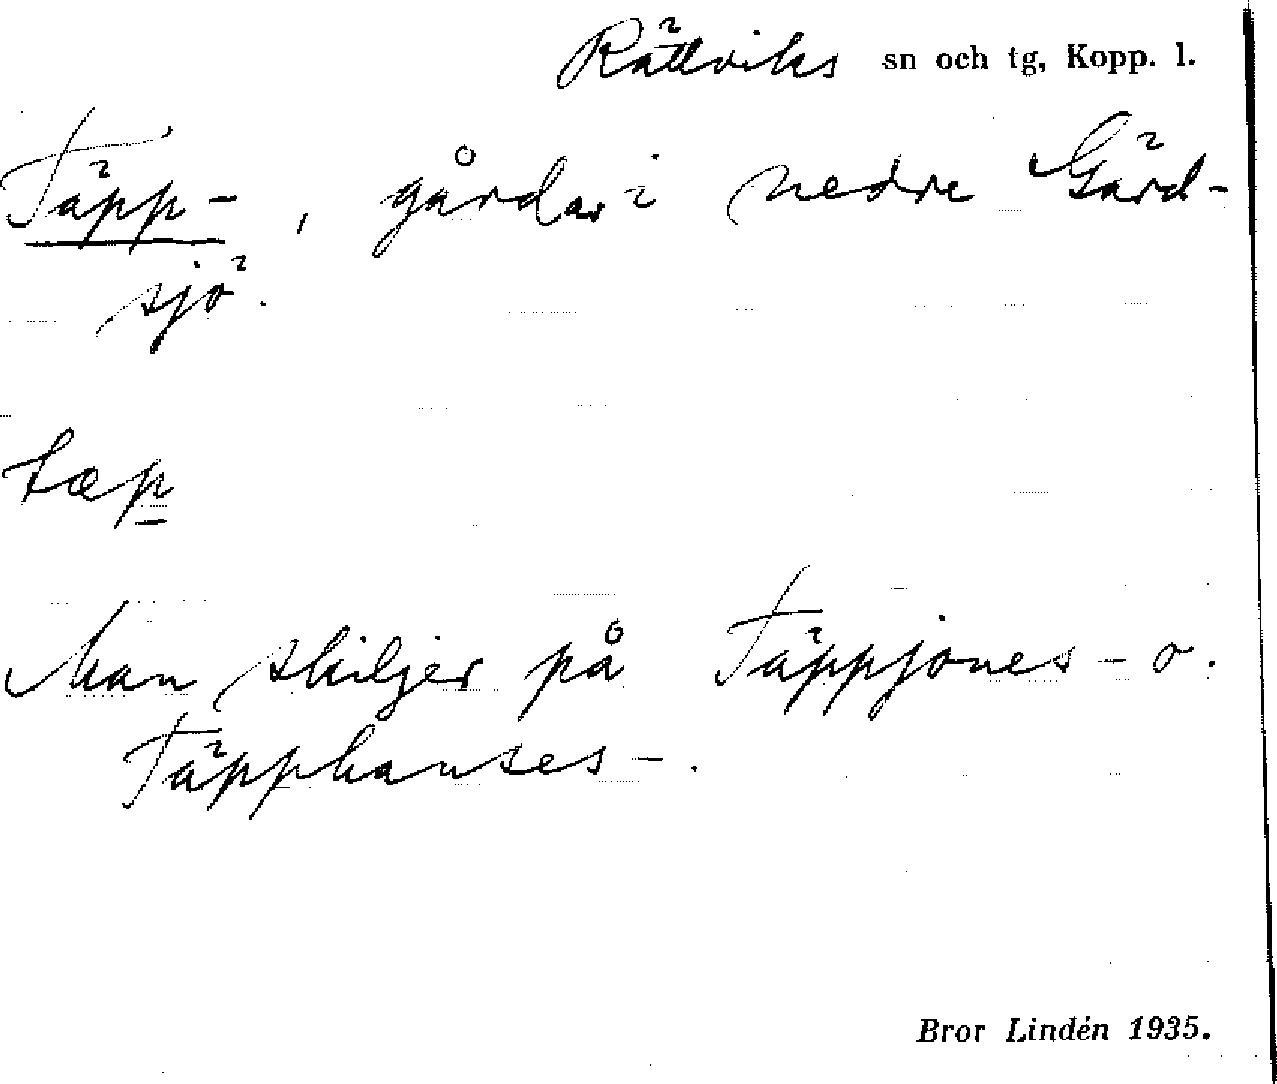 Rättviks sn och tg, Kopp. l.
Täpp-, gårdar i nedre Gärd-
sjö.
tæp
Man skiljer på Täppjones- o.
Täpphanses-.
Bror Lindén 1935.